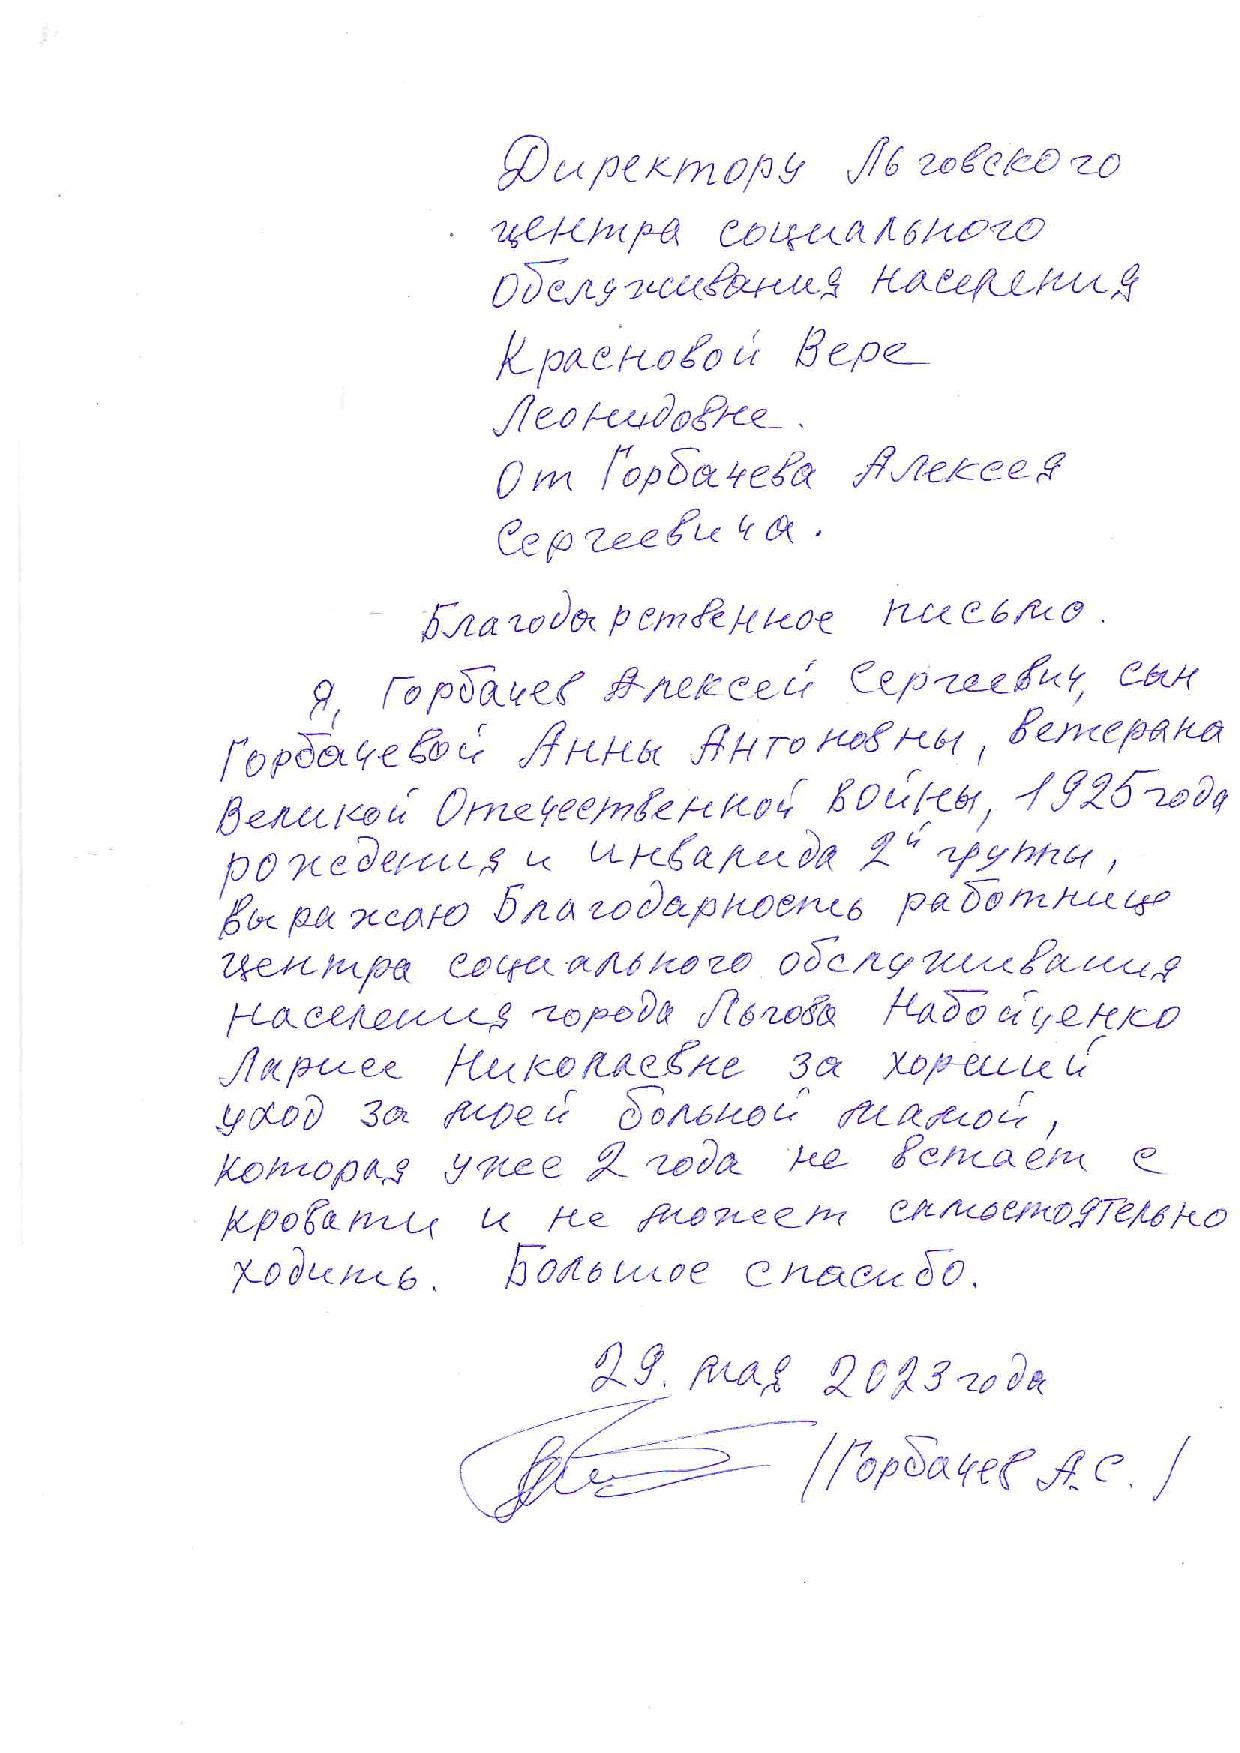 Директору Льговского
центра социального
обслуживания населения
Красновой Вере
Леонидовне.
От Горбачева Алексея
Сергеевича.
Благодарственное письмо.
Я, Горбачев Алексей Сергеевич, сын
Горбачевой Анны Антоновны, ветерана
Великой Отечественной войны, 1925 года
рождения и инвалида 2й группы,
выражаю Благодарность работнице
центра социального обслуживания
населения города Льгова Набойченко
Ларисе Николаевне за хороший
уход за моей больной мамой,
которая уже 2 года не встает с
кровати и не может самостоятельно
ходить. Большое спасибо.
29. мая 2023 года
/Горбачев А.С./